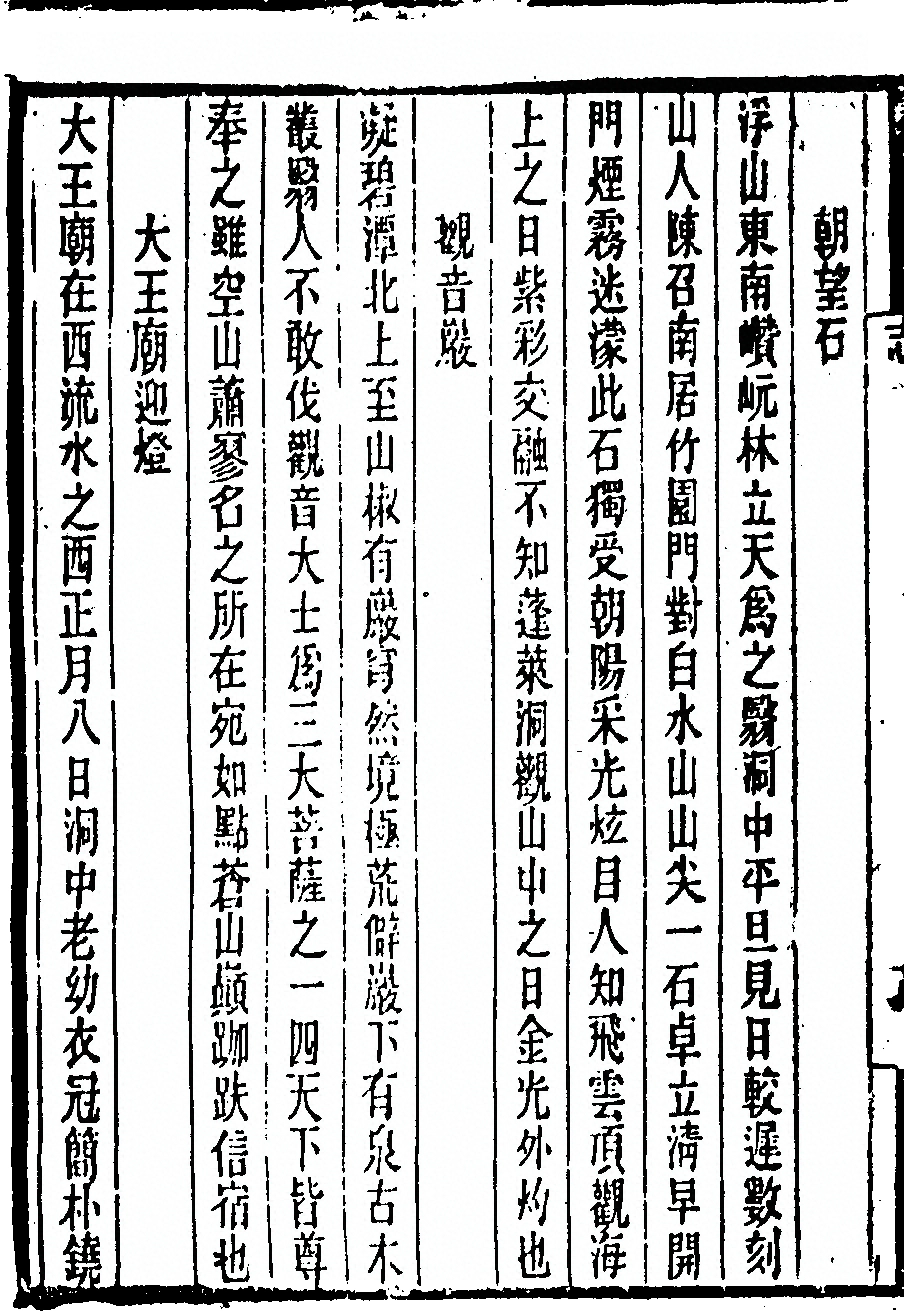 朝望石
浮山東南巑岏林立天爲之翳洞中平旦見日較遲數刻
山人陳召南居竹園門對白水山山尖一石卓立淸早開
門煙霧迷濛此石獨受朝陽采光炫目人知飛雲頂觀海
上之日紫彩交融不知蓬萊洞觀山中之日金光外灼也
觀音巖
凝碧潭北上至山椒有巖窅然境極荒僻巖下有泉古木
叢翳人不敢伐觀音大士爲三大菩薩之一四天下皆尊
奉之雖空山蕭寥名之所在宛如點蒼山巔跏趺信宿也
大王廟迎燈
大王廟在西流水之西正月八日洞中老幼衣冠簡朴鐃
志